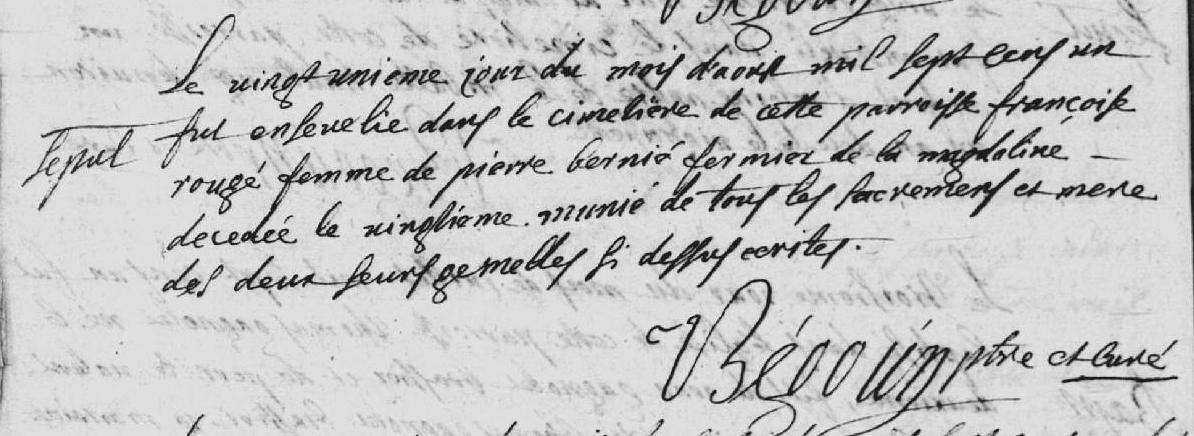 Le vingt unieme jour du mois d'aoust mil sept cens un
Sepul
fut ensevelie dans le cimetière de cette parroisse françoise
rougé femme de pierre bernié fermier de la magdaline –
decedée le vingtieme . munié de tous les sacremens et mere
des deux seurs gemelles si dessus ecrites .
Bédouin ptre et Curé